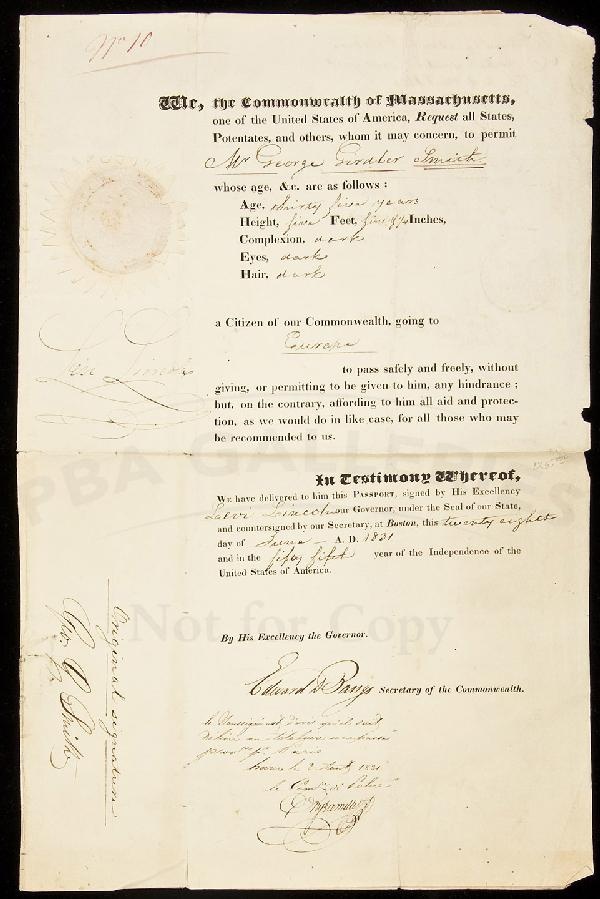 No 10
We, the Commonwealth of Massachusetts,
one of the United States of America, Request all States,
Potentates, and others, whom it may concern, to permit
Mr George Girdler Smith
whose age, &c. are as follows:
Age, thirty five years
Height, five Feet, Inches,
Complexion, dark
Eyes, dark
Hair, dark
a Citizen of our Commonwealth, going to
Europe
to pass safely and freely, without
giving, or permitting to be given to him, any hindrance;
but, on the contrary, affording to him all aid and protec-
tion, as we would do in like case, for all those who may
be recommended to us.
Levi Lincoln
In Testimony Whereof,
We have delivered to him this Passport, signed by His Excellency
Levi Lincoln our Governor, under the Seal of our State,
and countersigned by our Secretary, at Boston, this twenty eighth
day of June A. D. 1831
and in the fifty fifth year of the Independence of the
United States of America.
By His Excellency the Governor.
Edward D Bangs Secretary of the Commonwealth.
Paris
1831
Original signature
Geo. G. Smith
PBA GALLERIES
Not for Copy